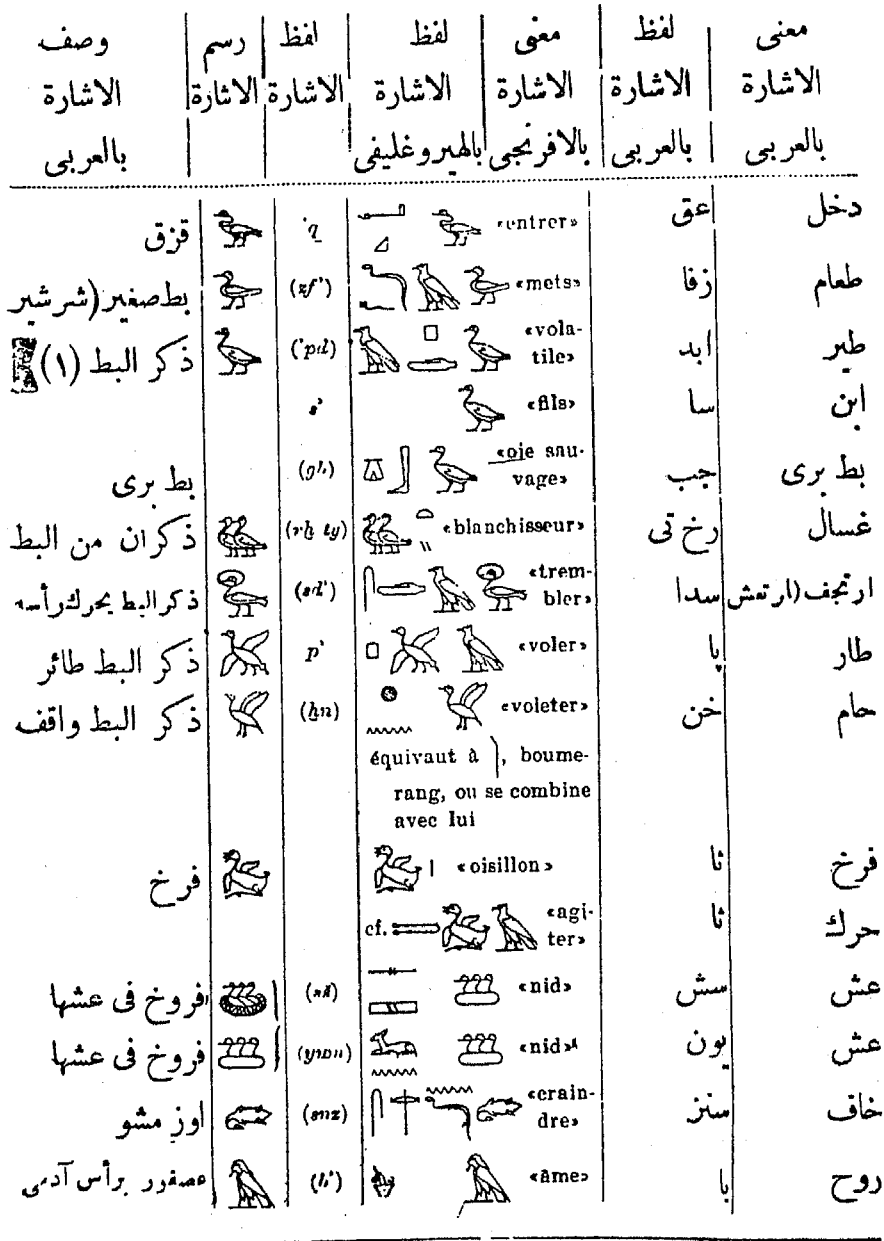 معنى الاشارة بالعربى | لفظ الاشارة بالعربى | معنى الاشارة بالافرنجى | لفظ الاشارة بالهيروغليفى | لفظ الاشارة | رسم الاشارة | وصف الاشارة بالعربى
دخل | عق | «entrer» | 'q | قزق
طعام | زفا | «mets» | (zf') | بط صغير (شرشير
طير | ابد | «vola-tile» | ('pd) | ذكر البط (١)
ابن | سا | «fils» | s'
بط برى | جب | «oie sau-vage» | (gb) | بط برى
غسال | رخ تى | «blanchisseur» | (rḫ ty) | ذكران من البط
ارتجف (ارتعش | سدا | «trem-bler» | (sd') | ذكر البط يحرك رأسه
طار | پا | «voler» | p' | ذكر البط طائر
حام | خن | «voleter» | (ḫn) | ذكر البط واقف
équivaut à , boume-
rang, ou se combine
avec lui
فرخ | ثا | «oisillon» | فرخ
حرك | ثا | «agi-ter» | cf.
عش | سش | «nid» | (sš) | فروخ فى عشها
عش | يون | «nid» | فروخ فى عشها
خاف | سنز | «crain-dre» | (snz) | اوز مشو
روح | با | «âme» | (b') | عصفور برأس آدمى